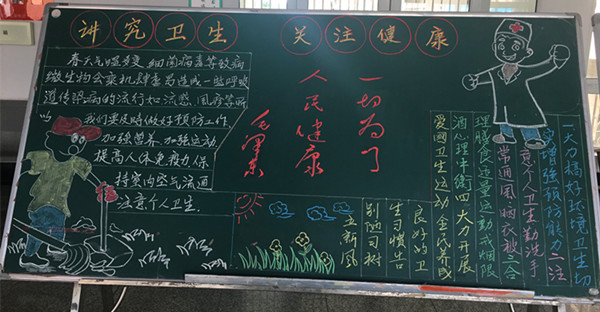 讲究卫生 关注健康
春天气温多变,细菌病毒等致病
微生物会乘机肆意易造成一些呼吸
道传染病的流行如流感,风疹等所
以我们要及时做好预防工作
加强营养、加强运动
提高人体免疫力保
持室内空气流通
注意个人卫生.
一切为了
人民健康
毛泽东
一大力搞好环境卫生切
实增强预防能力二注
意个人卫生勤洗手
常通风晒衣被三合
理膳食适量运动戒烟限
酒心理平衡四大力开展
爱国卫生运动全民养成
良好的卫
生习惯告
别陋习树
立新风